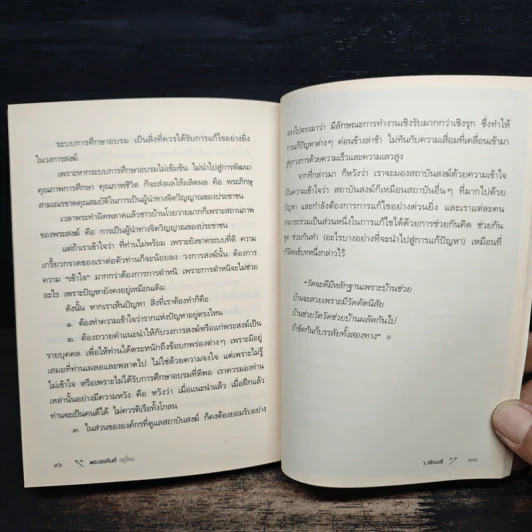 ระบบการศึกษาอบรม เป็นสิ่งที่ควรได้รับการแก้ไขอย่างยิ่ง
ในวงการสงฆ์
เพราะหากระบบการศึกษาอบรมไม่เข้มข้น ไม่นำไปสู่การพัฒนา
คุณภาพการศึกษา คุณภาพชีวิต ก็จะส่งผลให้ผลิตผล คือ พระภิกษุ
สามเณรขาดคุณสมบัติในการเป็นผู้นำทางจิตวิญญาณของประชาชน
เวลาพระทำผิดพลาดแล้วชาวบ้านโวยวายมากก็เพราะสถานภาพ
ของพระสงฆ์ คือ การเป็นผู้นำทางจิตวิญญาณของประชาชน
แต่ถ้าเราเข้าใจว่า ที่ท่านไม่พร้อม เพราะยังขาดระบบที่ดี ความ
เกรี้ยวกราดของเราต่อตัวท่านก็จะน้อยลง วงการสงฆ์นั้น ต้องการ
ความ "เข้าใจ" มากกว่าต้องการการตำหนิ เพราะการตำหนิจะไม่ช่วย
อะไร เพราะปัญหายังคงอยู่เหมือนเดิม
ดังนั้น หากเราเห็นปัญหา สิ่งที่เราต้องทำก็คือ
๑. ต้องทำความเข้าใจว่ารากแห่งปัญหาอยู่ตรงไหน
๒. ต้องถวายคำแนะนำให้กับวงการสงฆ์หรือแก่พระสงฆ์เป็น
รายบุคคล เพื่อให้ท่านได้ตระหนักถึงข้อบกพร่องต่างๆ เพราะมีอยู่
เสมอที่ท่านเผลอและพลาดไป ไม่ใช่ด้วยความจงใจ แต่เพราะไม่รู้
ไม่เข้าใจ หรือเพราะไม่ได้รับการศึกษาอบรมที่ดีพอ เราควรมองท่าน
เหล่านั้นอย่างมีความหวัง คือ หวังว่า เมื่อแนะนำแล้ว เมื่อฝึกแล้ว
ท่านจะเป็นคนดีได้ ไม่ควรติเรือทั้งโกลน
๓. ในส่วนขององค์กรที่ดูแลสถาบันสงฆ์ ก็คงต้องยอมรับอย่าง
พระอรหันต์
ตรงไปตรงมาว่า มีลักษณะการทำงานเชิงรับมากกว่าเชิงรุก ซึ่งทำให้
การแก้ปัญหาต่างๆ ค่อนข้างล่าช้า ไม่ทันกับความเสื่อมที่เคลื่อนเข้ามา
สู่วงการด้วยความเร็วและความเลวสูง
จากที่กล่าวมา ก็หวังว่า เราจะมองสถาบันสงฆ์ด้วยความเข้าใจ
เป็นความเข้าใจว่า สถาบันสงฆ์ก็เหมือนสถาบันอื่นๆ ที่มากไปด้วย
ปัญหา และกำลังต้องการการแก้ไขอย่างด่วนยิ่ง และเราแต่ละคน
สามารถร่วมเป็นส่วนหนึ่งในการแก้ไขได้ด้วยการช่วยกันคิด ช่วยกัน
พูด ช่วยกันทำ (อะไรบางอย่างที่จะนำไปสู่การแก้ปัญหา) เหมือนที่
กวีนิพนธ์บทหนึ่งกล่าวไว้
"วัดจะดีมีหลักฐานเพราะบ้านช่วย
บ้านจะสวยเพราะมีวัดดัดนิสัย
บ้านช่วยวัดวัดช่วยบ้านผลัดกันไป
ถ้าขัดกันก็บรรลัยทั้งสองทาง"
ว.วชิรเมธี